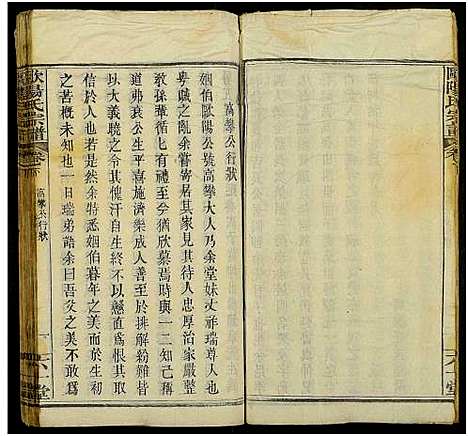 歐陽氏宗譜
卷
高攀公行狀
姻伯歐陽公號高攀大人乃余堂妹丈祥瑞尊人也
粵戚之亂余嘗寄居其家見其待人忠厚治家嚴整
孫輩循循有禮意今猶欣慕焉時與一二知己稱
道弗衰公生平喜濟樂成人善至於排解紛難皆
以大義曉之令人愧汗自生終以懸直爲恨其取
之苦概未知也一日瑞弟語余曰吾父之美不敢爲
之而余特悉姻伯暮年之美而於前
歐陽氏宗譜
卷
高攀公行狀
一
六一堂